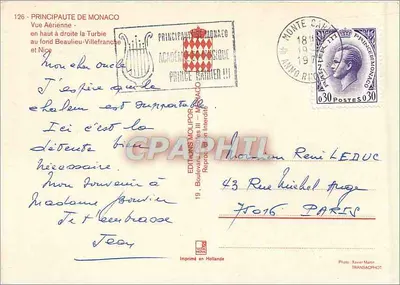 126 - PRINCIPAUTE DE MONACO
Vue Aérienne -
en haut à droite la Turbie
au fond Beaulieu-Villefranche
et Nice
PRINCIPAUTÉ DE MONACO
ACADÉMIE DE MUSIQUE
PRINCE RAINIER III
MONTE CARLO
18
19
197
0,30 POSTES 0,30
Mon cher oncle
J'espère que la
chaleur est supportable.
Ici c'est la
détente bien
nécessaire.
Mon souvenir à
Madame
Je t'embrasse
Jean
EDITIONS MOLIPOR
19, Boulevard III - MONACO
Reproduction Interdite
CPAPHIL
Monsieur René LEDUC
43 Rue Michel Ange
75016 PARIS
Imprimé en Hollande
Photo :
TRANSACPHOT